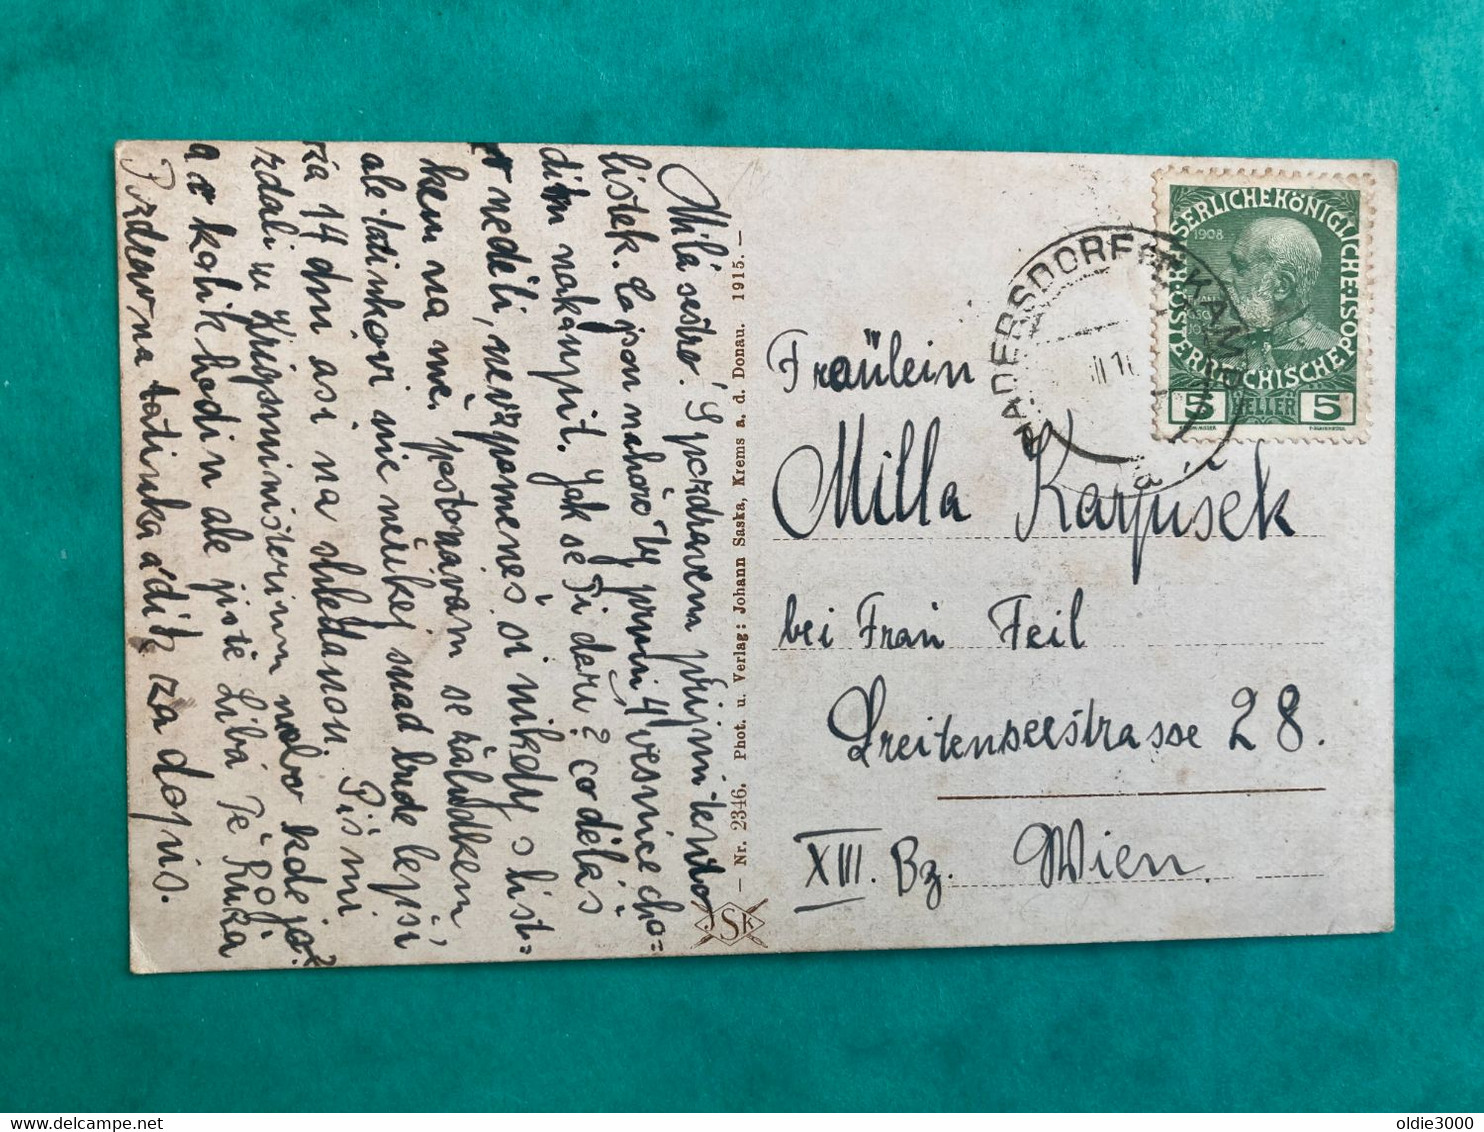 Milá sestro! S pozdravem přijmi tento
lístek. la json nahoro ty první 4 vesnice cho=
dím nakoupit. Jak se Ti daří? co děláš
v neděli, nevzpomeneš si nikdy s líst=
kem na mě. postonávám se žaludkem,
ale tatínkovi nic neříkej snad bude lepší
za 14 dní asi na shledanou. Piš mi
zdali u Krigsministerium nebo kde jo?
a v kolik hodin ale jistě Líbá Tě Růža
Pozdrav na tatínka a dík za dopis.
Nr. 2346. Phot. u. Verlag: Johann Saska, Krems a. d. Donau. 1915.
JSK
KAISERLICHE KÖNIGLICHE ÖSTERREICHISCHE POST
1908
5 HELLER 5
HADERSDORF a. KAMP
a
Fräulein
Milla Karpíšek
bei Frau Feil
Breitenseerstrasse 28.
XIII. Bz. Wien.
oldie3000